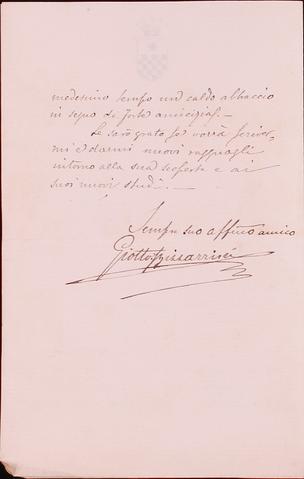 medesimo tempo un caldo abbaccio
in segno di forte amicizia. —
Le sarò grato se vorrà scriver-
mi e darmi nuovi ragguagli
intorno alla sua scoperta e ai
suoi nuovi studi. —
Sempre suo affmo amico
Giotto Bizzarrini